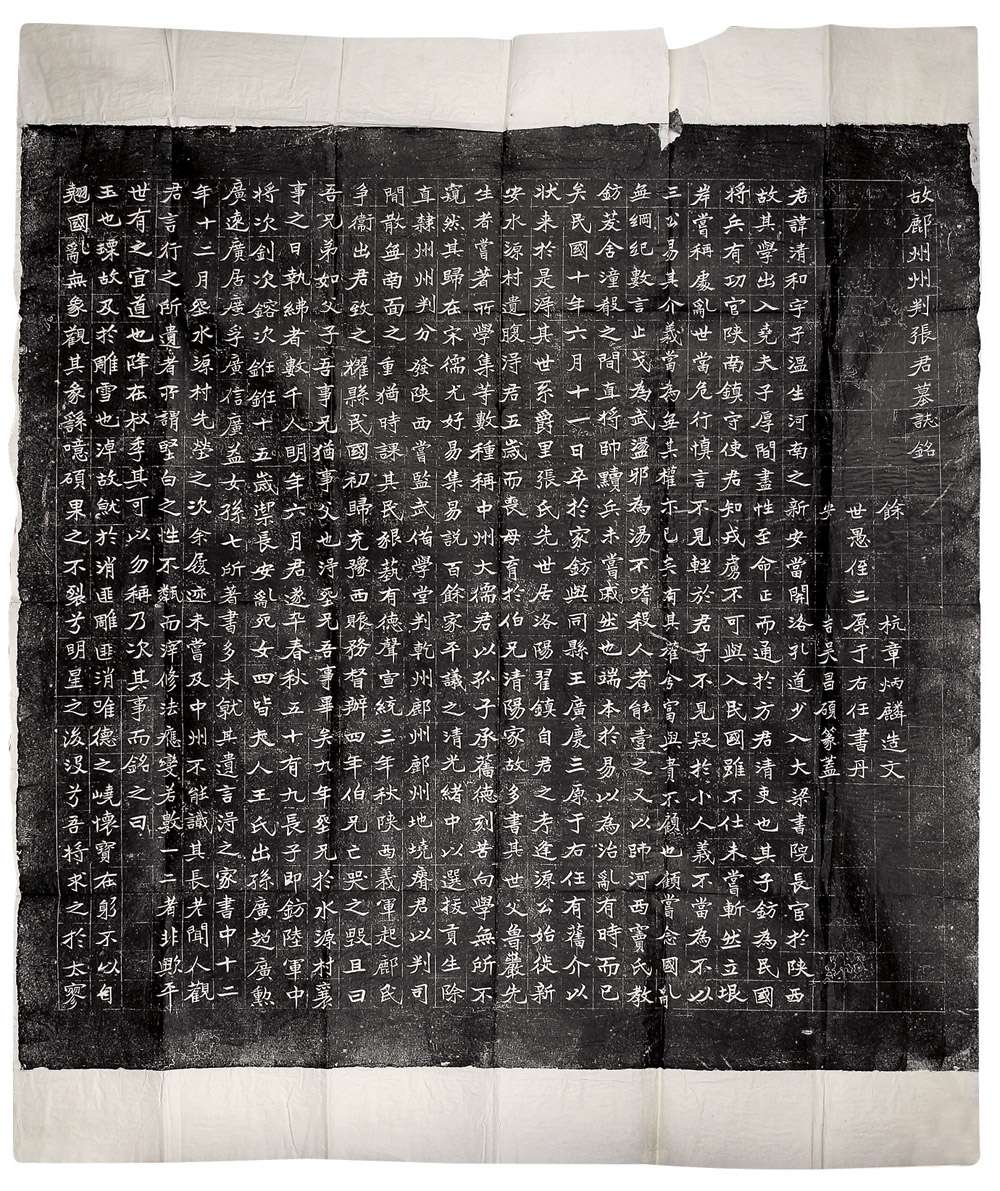 故鄜州州判張君墓誌銘
餘杭章炳麟造文
世愚侄三原于右任書丹
安吉吳昌碩篆蓋
君諱清和字子溫生河南之新安當關洛孔道少入大梁書院長宦於陝西
故其學出入堯夫子厚閒盡性至命正而通於方君清吏也其子鈁為民國
將兵有功官陝南鎮守使君知戎虜不可與入民國雖不仕未嘗斬然立垠
岸嘗稱處亂世當危行慎言不見輕於君子不見疑於小人義不當為不以
三公易其介義當為無其權亦已矣有其權舍富與貴不顧也顧嘗念國亂
無綱紀數言止戈為武盪邪為湯不嗜殺人者能壹之又以師河西竇氏教
鈁茇舍潼殽之間直將帥黷兵未嘗戚然也端本於易以為治亂有時而已
矣民國十年六月十一日卒於家鈁與同縣王廣慶三原于右任有舊介以
狀来於是淂其世系爵里張氏先世居洛陽翟鎮自君之考逢源公始徙新
安水源村遺腹淂君五歲而喪母育於伯兄清陽家故多書其世父魯巖先
生者嘗著所學集等數種稱中州大儒君以孤子承舊德刻苦向學無所不
窺然其歸在宋儒尤好易集易説百餘家平議之清光緒中以選拔貢生除
直隸州州判分發陝西嘗監武備學堂判乾州鄜州鄜州地境瘠君以判司
閒散無南面之重猶時課其民㹞蓺有德聲宣統三年秋陝西義軍起鄜民
爭衞出君致之耀縣民國初歸充豫西賑務督辦四年伯兄亡哭之毀且曰
吾兄弟如父子吾事兄猶事父也淂葬兄吾事畢矣九年葬兄於水源村襄
事之日執紼者數千人明年六月君遂卒春秋五十有九長子即鈁陸軍中
將次釗次鎔次鉅鉅十五歲禦長安亂死女四皆夫人王氏出孫廣超廣勲
廣遠廣居廣孚廣信廣益女孫七所著書多未就其遺言淂之家書中十二
年十二月葬水源村先塋之次余屐迹未嘗及中州不能識其長老聞人觀
君言行之所遺者所謂堅白之性不飄而滓修法應變若數一二者非歟平
世有之宜道也降在叔季其可以勿稱乃次其事而銘之曰
玉也瑮故及於雕雪也淖故就於消匪雕匪消唯德之嶢懷寶在躬不以自
翹國亂無象觀其象繇噫碩果之不裂兮明星之浚沒兮吾將求之於太寥